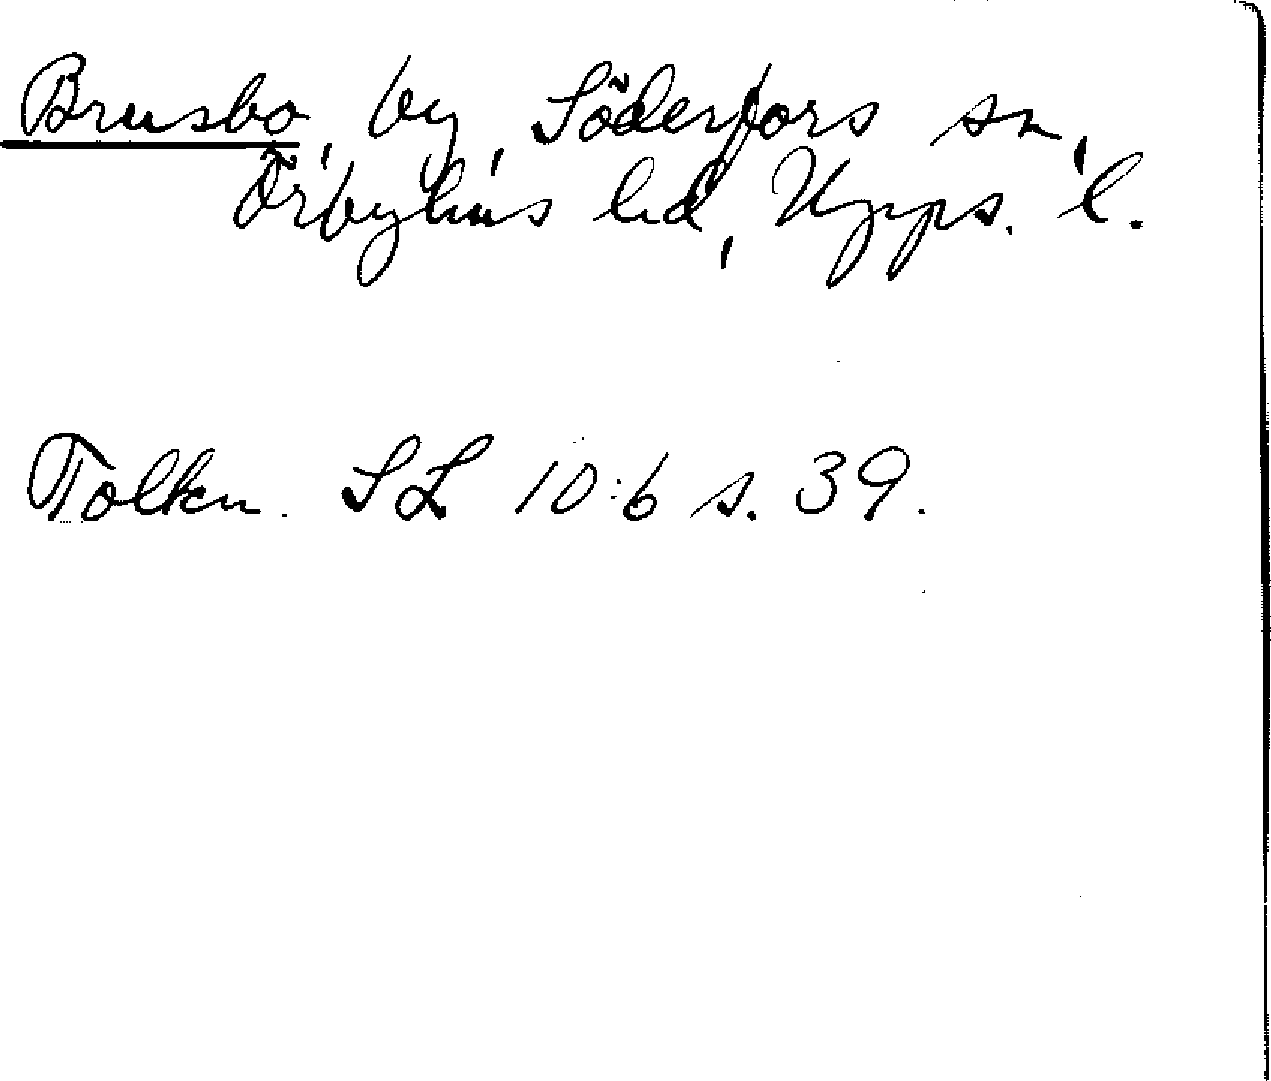 Brusbo, by, Söderfors sn,
Örbyhus hd, Upps. l.
Tolkn. SL 10:6 s. 39.